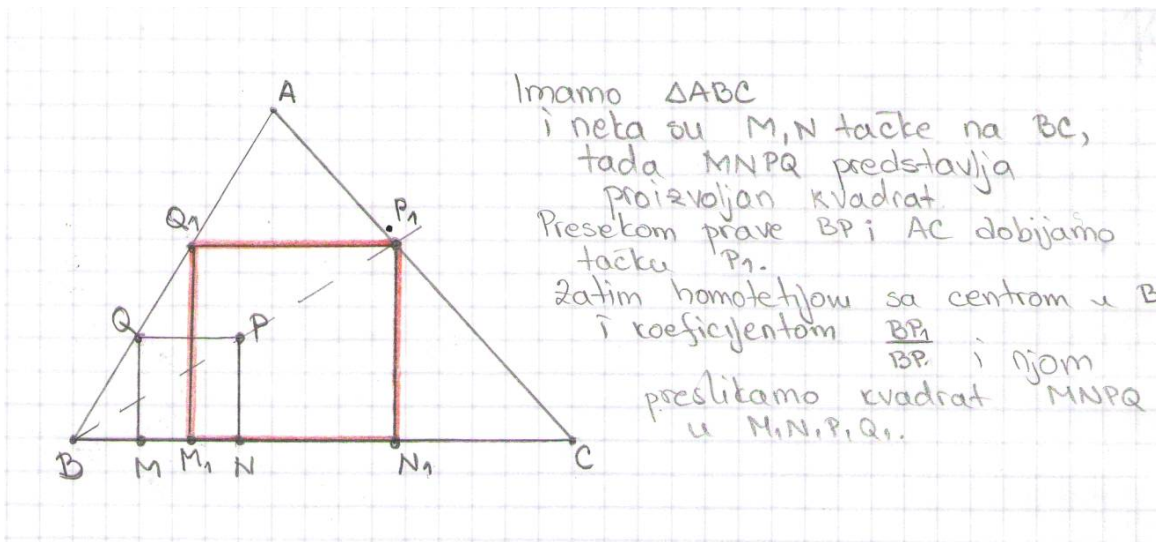 A
Q1
P1
Q
P
B
M
M1
N
N1
C
Imamo ΔABC
i neka su M,N tačke na BC,
tada MNPQ predstavlja
proizvoljan kvadrat
Presekom prave BP i AC dobijamo
tačku P1.
Zatim homotetijom sa centrom u B
i koeficijentom BP1/BP. i njom
preslikamo kvadrat MNPQ
u M1N1P1Q1.